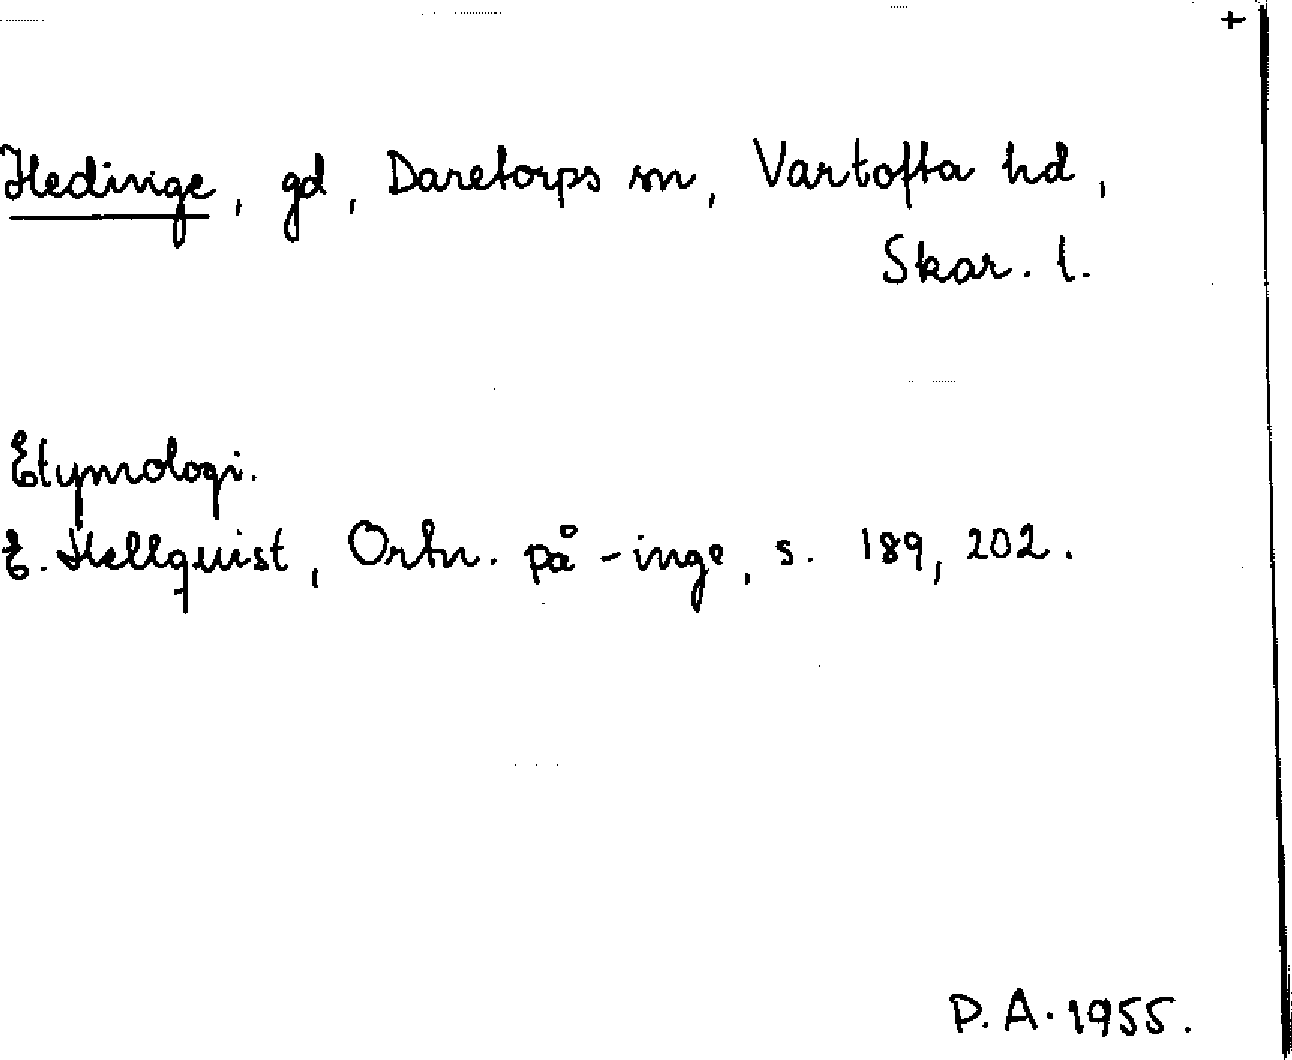 +
Hedinge, gd, Daretorps sn, Vartofta hd,
Skar. l.
Etymologi.
E. Hellquist, Ortn. på -inge, s. 189, 202.
P. A. 1955.